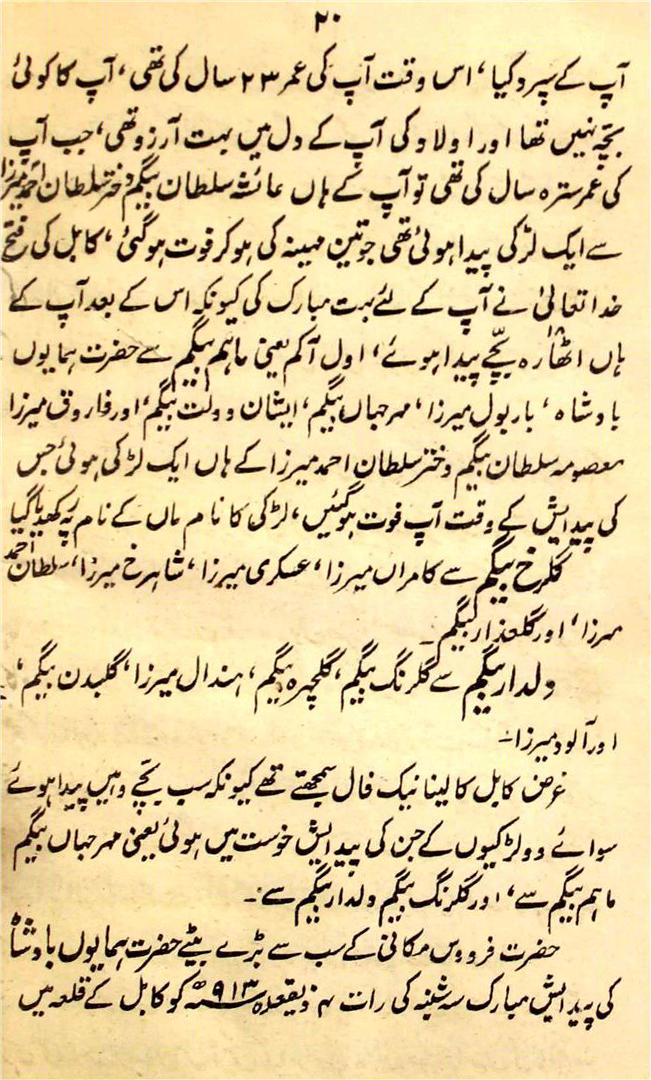 ۲۰
آپ کے سپرد کیا، اس وقت آپ کی عمر ۲۳ سال کی تھی، آپ کا کوئی
بچّہ نہیں تھا اور اولاد کی آپ کے دل میں بہت آرزو تھی، جب آپ
کی عمر سترہ سال کی تھی تو آپ کے ہاں عائشہ سلطان بیگم دختر سلطان احمد میرزا
سے ایک لڑکی پیدا ہوئی تھی جو تین مہینہ کی ہو کر فوت ہو گئی، کابل کی فتح
خدا تعالیٰ نے آپ کے لئے بہت مبارک کی کیونکہ اس کے بعد آپ کے
ہاں اٹھارہ بچّے پیدا ہوئے، اول آکم یعنی ماہم بیگم سے حضرت ہمایوں
بادشاہ، باربول میرزا، مہر جہاں بیگم، ایشان دولت بیگم، اور فاروق میرزا
معصومہ سلطان بیگم دختر سلطان احمد میرزا کے ہاں ایک لڑکی ہوئی جس
کی پیدایش کے وقت آپ فوت ہو گئیں، لڑکی کا نام ماں کے نام پہ رکھدیا گیا
گلرخ بیگم سے کامراں میرزا، عسکری میرزا، شاہرخ میرزا، سلطان احمد
میرزا، اور گلعذار بیگم۔
دلدار بیگم سے گلرنگ بیگم، گلچہرہ بیگم، ہندال میرزا، گلبدن بیگم،
اور آلود میرزا۔
غرض کابل کا لینا نیک فال سمجھتے تھے کیونکہ سب بچّے وہیں پیدا ہوئے
سوائے دو لڑکیوں کے جن کی پیدایش خوست میں ہوئی یعنی مہر جہاں بیگم
ماہم بیگم سے، اور گلرنگ بیگم دلدار بیگم سے۔
حضرت فردوس مکانی کے سب سے بڑے بیٹے حضرت ہمایوں بادشاہ
کی پیدایش مبارک سہ شنبہ کی رات ۴ ذیقعدہ ۹۱۳ھ کو کابل کے قلعہ میں